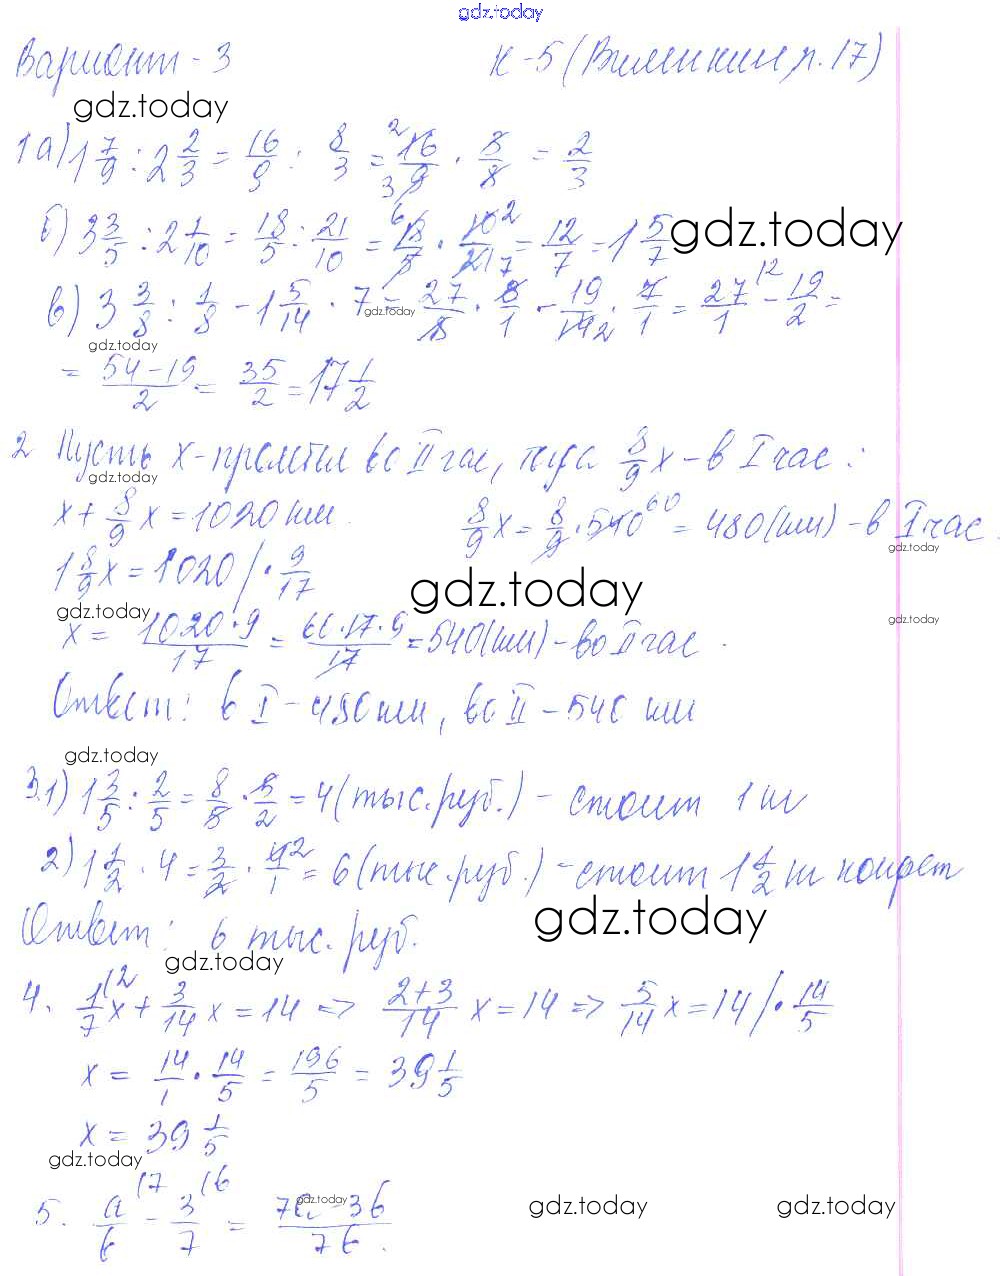 gdz.today
Вариант - 3 К-5 (Виленкин, п. 17)
gdz.today
1 а) 1 7/9 : 2 2/3 = 16/9 : 8/3 = 16/9 · 3/8 = 2/3
б) 3 3/5 : 2 1/10 = 18/5 : 21/10 = 18/5 · 10/21 = 12/7 = 1 5/7
gdz.today
в) 3 3/8 : 1/8 - 1 5/14 · 7 = 27/8 · 8/1 - 19/14 · 7/1 = 27/1 - 19/2 =
gdz.today
gdz.today
= 54-19/2 = 35/2 = 17 1/2
2 Пусть x - пролетел во II час, тогда 8/9 x - в I час:
gdz.today
x + 8/9 x = 1020 км. 8/9 x = 8/9 · 540 = 480 (км) - в I час.
gdz.today
1 8/9 x = 1020 | · 9/17
gdz.today
gdz.today gdz.today
x = 1020·9/17 = 60·17·9/17 = 540 (км) - во II час.
Ответ: в I - 480 км, во II - 540 км
gdz.today
3. 1) 1 3/5 : 2/5 = 8/5 · 5/2 = 4 (тыс. руб.) - стоит 1 кг
2) 1 1/2 · 4 = 3/2 · 4/1 = 6 (тыс. руб.) - стоит 1 1/2 кг конфет
gdz.today
Ответ: 6 тыс. руб.
gdz.today
4. 1/7 x + 3/14 x = 14 => 2+3/14 x = 14 => 5/14 x = 14 | · 14/5
x = 14/1 · 14/5 = 196/5 = 39 1/5
x = 39 1/5
gdz.today
5. a/b - 3/7 = 7a-3b/7b.
gdz.today gdz.today gdz.today